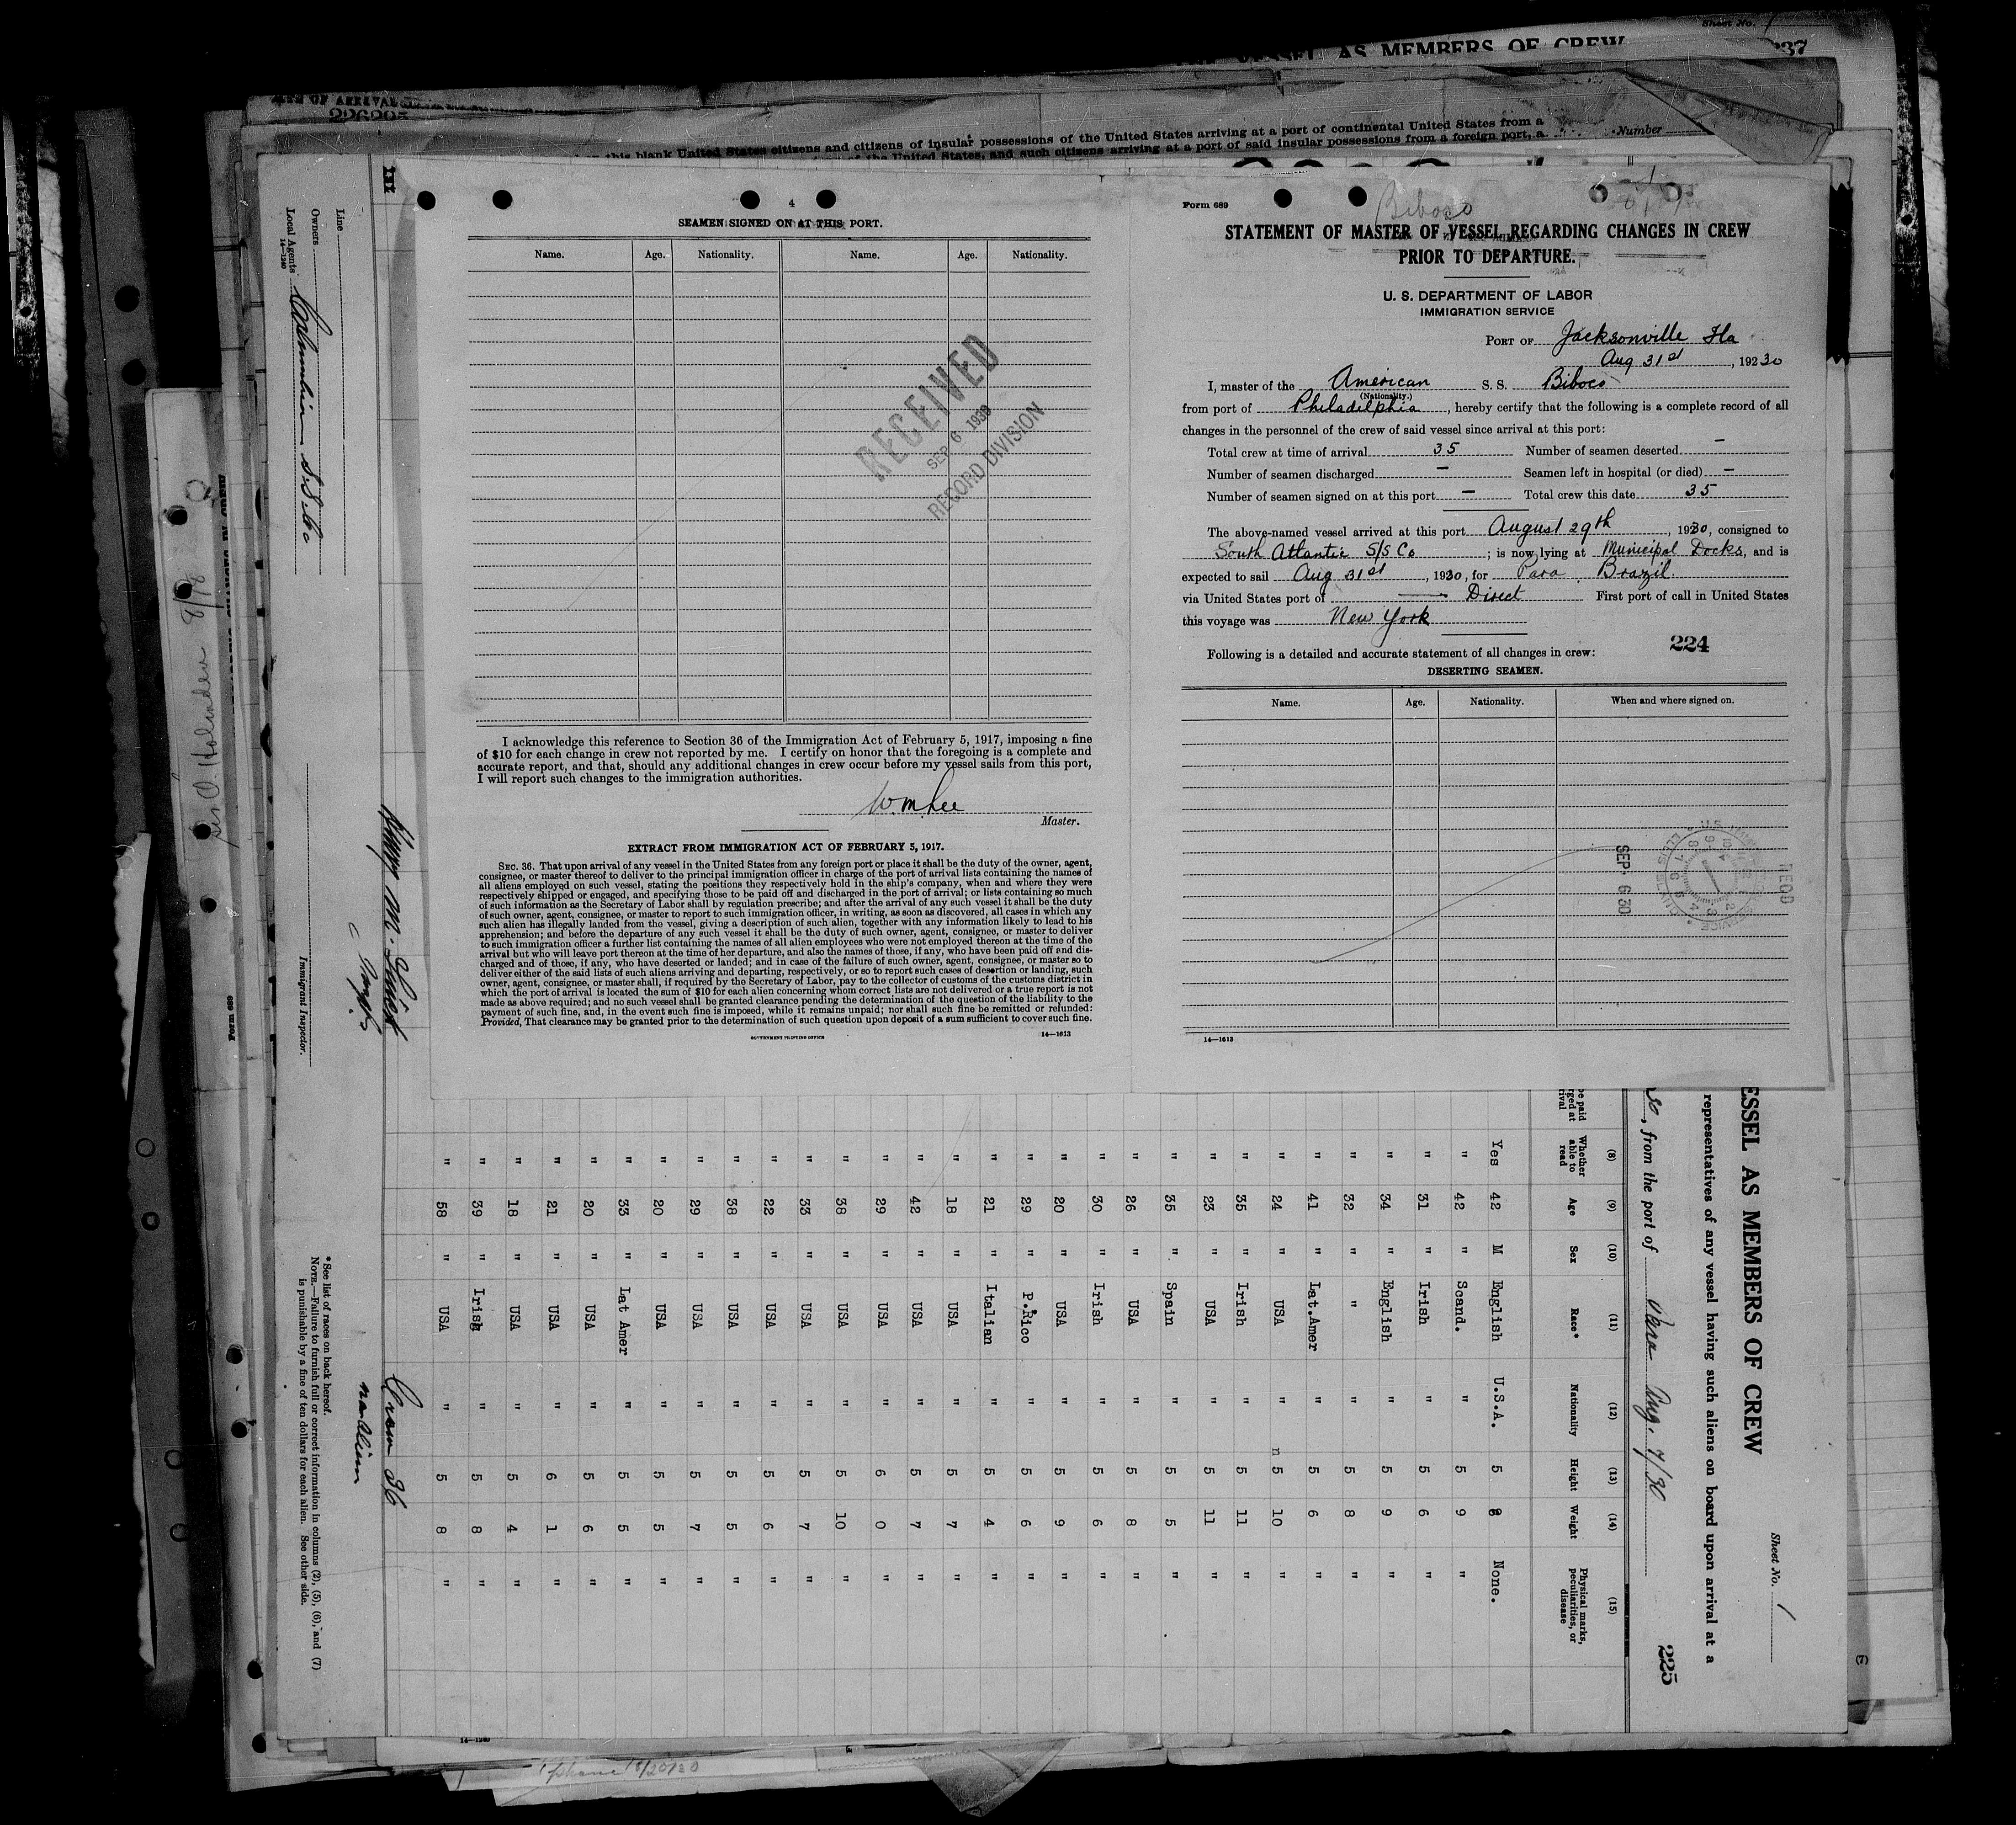 Sheet No. 1
VESSEL AS MEMBERS OF CREW
237
226295
this blank United States citizens and citizens of insular possessions of the United States arriving at a port of continental United States from a
of the United States, and such citizens arriving at a port of said insular possessions from a foreign port, a
Number
4
SEAMEN SIGNED ON AT THIS PORT.
Name. Age. Nationality. Name. Age. Nationality.
RECEIVED
SEP 6 1930
RECORD DIVISION
I acknowledge this reference to Section 36 of the Immigration Act of February 5, 1917, imposing a fine
of $10 for each change in crew not reported by me. I certify on honor that the foregoing is a complete and
accurate report, and that, should any additional changes in crew occur before my vessel sails from this port,
I will report such changes to the immigration authorities.
Wm Lee
Master.
EXTRACT FROM IMMIGRATION ACT OF FEBRUARY 5, 1917.
SEC. 36. That upon arrival of any vessel in the United States from any foreign port or place it shall be the duty of the owner, agent,
consignee, or master thereof to deliver to the principal immigration officer in charge of the port of arrival lists containing the names of
all aliens employed on such vessel, stating the positions they respectively hold in the ship's company, when and where they were
respectively shipped or engaged, and specifying those to be paid off and discharged in the port of arrival; or lists containing so much
of such information as the Secretary of Labor shall by regulation prescribe; and after the arrival of any such vessel it shall be the duty
of such owner, agent, consignee, or master to report to such immigration officer, in writing, as soon as discovered, all cases in which any
such alien has illegally landed from the vessel, giving a description of such alien, together with any information likely to lead to his
apprehension; and before the departure of any such vessel it shall be the duty of such owner, agent, consignee, or master to deliver
to such immigration officer a further list containing the names of all alien employees who were not employed thereon at the time of the
arrival but who will leave port thereon at the time of her departure, and also the names of those, if any, who have been paid off and dis-
charged and of those, if any, who have deserted or landed; and in case of the failure of such owner, agent, consignee, or master so to
deliver either of the said lists of such aliens arriving and departing, respectively, or so to report such cases of desertion or landing, such
owner, agent, consignee, or master shall, if required by the Secretary of Labor, pay to the collector of customs of the customs district in
which the port of arrival is located the sum of $10 for each alien concerning whom correct lists are not delivered or a true report is not
made as above required; and no such vessel shall be granted clearance pending the determination of the question of the liability to the
payment of such fine, and, in the event such fine is imposed, while it remains unpaid; nor shall such fine be remitted or refunded:
Provided, That clearance may be granted prior to the determination of such question upon deposit of a sum sufficient to cover such fine.
GOVERNMENT PRINTING OFFICE 14—1613
Form 689
Biboco
STATEMENT OF MASTER OF VESSEL REGARDING CHANGES IN CREW
PRIOR TO DEPARTURE.
U. S. DEPARTMENT OF LABOR
IMMIGRATION SERVICE
PORT OF Jacksonville Fla
Aug 31st, 1930
I, master of the American S. S. Biboco
(Nationality.)
from port of Philadelphia, hereby certify that the following is a complete record of all
changes in the personnel of the crew of said vessel since arrival at this port:
Total crew at time of arrival 35 Number of seamen deserted —
Number of seamen discharged — Seamen left in hospital (or died) —
Number of seamen signed on at this port — Total crew this date 35
The above-named vessel arrived at this port August 29th, 1930, consigned to
South Atlantic S/S Co; is now lying at Municipal Docks, and is
expected to sail Aug 31st, 1930, for Para Brazil.
via United States port of — Direct First port of call in United States
this voyage was New York
224
Following is a detailed and accurate statement of all changes in crew:
DESERTING SEAMEN.
Name. Age. Nationality. When and where signed on.
SEP. 6 30
RECD
14—1613
Sheet No. 1
VESSEL AS MEMBERS OF CREW
representatives of any vessel having such aliens on board upon arrival at a
30, from the port of Para Aug. 7/30
225
(8) (9) (10) (11) (12) (13) (14) (15)
Whether able to read Age Sex Race* Nationality Height Weight Physical marks, peculiarities, or disease
Yes 42 M English U.S.A. 5 8 None.
" 42 " Scand. " 5 9 "
" 31 " Irish " 5 6 "
" 34 " English " 5 9 "
" 32 " " " 5 8 "
" 41 " Lat.Amer " 5 6 "
" 24 " USA " 5 10 "
" 35 " Irish " 5 11 "
" 23 " USA " 5 11 "
" 35 " Spain " 5 5 "
" 26 " USA " 5 8 "
" 30 " Irish " 5 6 "
" 20 " USA " 5 9 "
" 29 " P.Rico " 5 6 "
" 21 " Italian " 5 4 "
" 18 " USA " 5 7 "
" 42 " USA " 5 7 "
" 29 " USA " 6 0 "
" 38 " USA " 5 10 "
" 33 " USA " 5 7 "
" 22 " USA " 5 6 "
" 38 " USA " 5 5 "
" 29 " USA " 5 7 "
" 20 " USA " 5 5 "
" 33 " Lat Amer " 5 5 "
" 20 " USA " 5 6 "
" 21 " USA " 6 1 "
" 18 " USA " 5 4 "
" 39 " Irish " 5 8 "
" 58 " USA " 5 8 "
Crew 36
no aliens
Line
Owners
Local Agents Columbian S.S.Co
14—1240
Immigrant Inspector.
* See list of races on back hereof.
NOTE.—Failure to furnish full or correct information in columns (2), (5), (6), and (7)
is punishable by a fine of ten dollars for each alien. See other side.
14—1240
Form 689